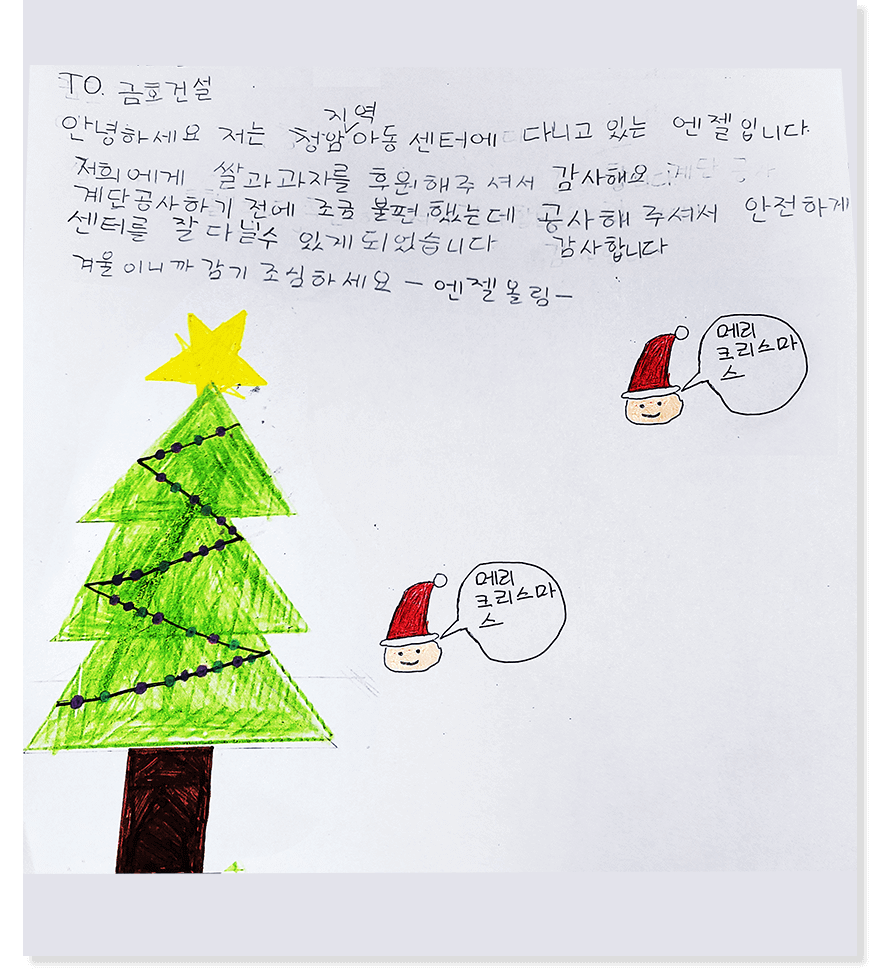 TO. 금호건설
안녕하세요 저는 청암지역아동센터에 다니고 있는 엔젤입니다.
저희에게 쌀과과자를 후원해주셔서 감사해요
계단공사하기 전에 조금 불편했는데 공사해주셔서 안전하게
센터를 잘다닐수 있게되었습니다 감사합니다
겨울이니까감기조심하세요 -엔젤올림-
메리
크리스마
스
메리
크리스마
스